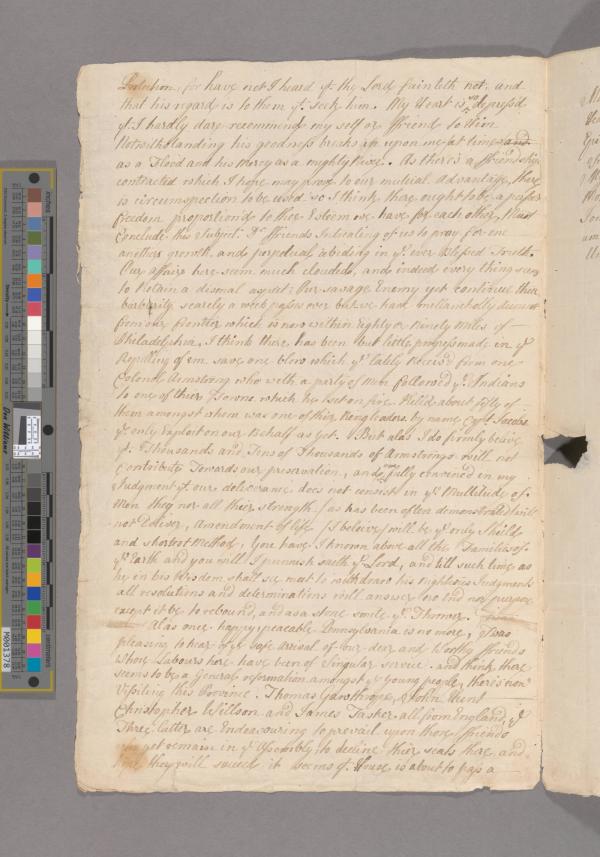 Protection, for have not I heard yt. the Lord fainteth not, and
that his regard is to them yt. seek him. My Heart is so depressed
yt. I hardly dare recommend my self or ffriend to Him
Notwithstanding his goodness breaks in upon me at times and
as a Flood and his mercy as a mighty River. As there's a ffriendship
contracted which I hope may prove to our mutual Advantage, there
is circumspection to be used so I think there ought to be a
freedom proportion'd to thee Esteem we have for each other, Must
Conclude this Subject. Yr. ffriends Intreating of us to pray for one
anothers growth, and perpetual abiding in ye. ever blessed Truth.
Our affairs here seem much clouded, and indeed every thing seems
to Retain a dismal aspect: Our savage Enemy yet continue their
barbarity, scarcly a week passes over but we have melancholly
from our frontier which is now within Eighty or Ninety Miles of
Philadelphia, I think there has been but little progress made in ye
Repelling of em. save one blow which ye lately Receiv'd from one
Colonel Armstrong who with a party of Men followed ye. Indians
to one of thier Towns which he set on fire Killd about fifty of
them amongst whom was one of thier Ringleaders by name Capt. Jacobs
ye only Exploit on our Behalf as yet. But alas I do firmly beleive
yt. Thousands and Tens of Thousands of Armstrongs will not
Contribute Towards our preservation, and am fully convinced in my
Judgment yt. our deliverance does not consist in ye Multitude of
Men they nor all thier strength (as has been often demonstrated) will
not Deliver, Amendment of life I beleive will be ye only Shield
and shortest Method, You have I known above all the Families of
ye Earth and you will I punnish saith ye Lord, and till such time as
he in his Wisdom shall see meet to withdraw his righteous Judgments
all resolutions and determinations will answer no End nor purpose
except it be to rebound, and as a stone smite ye Thrower.
Alas once happy, peacable Pennsylvania is no more, Twas
pleasing to hear of ye safe arival of our dear and Worthy ffriends
whose Labours here have been of Singular service and think there
seems to be a General reformation amongst ye young people, there's now
Vissiting this Province Thomas Gawthrop, & John Hunt
Christopher Willson and James Tasker all from England, ye
Three latter are Endeavouring to prevail upon those ffriends
yet remain in ye Assembly to decline thier seats there and
they will succeed it seems ye. House is about to pass a
inches
centimeters
Don Williams
M001378